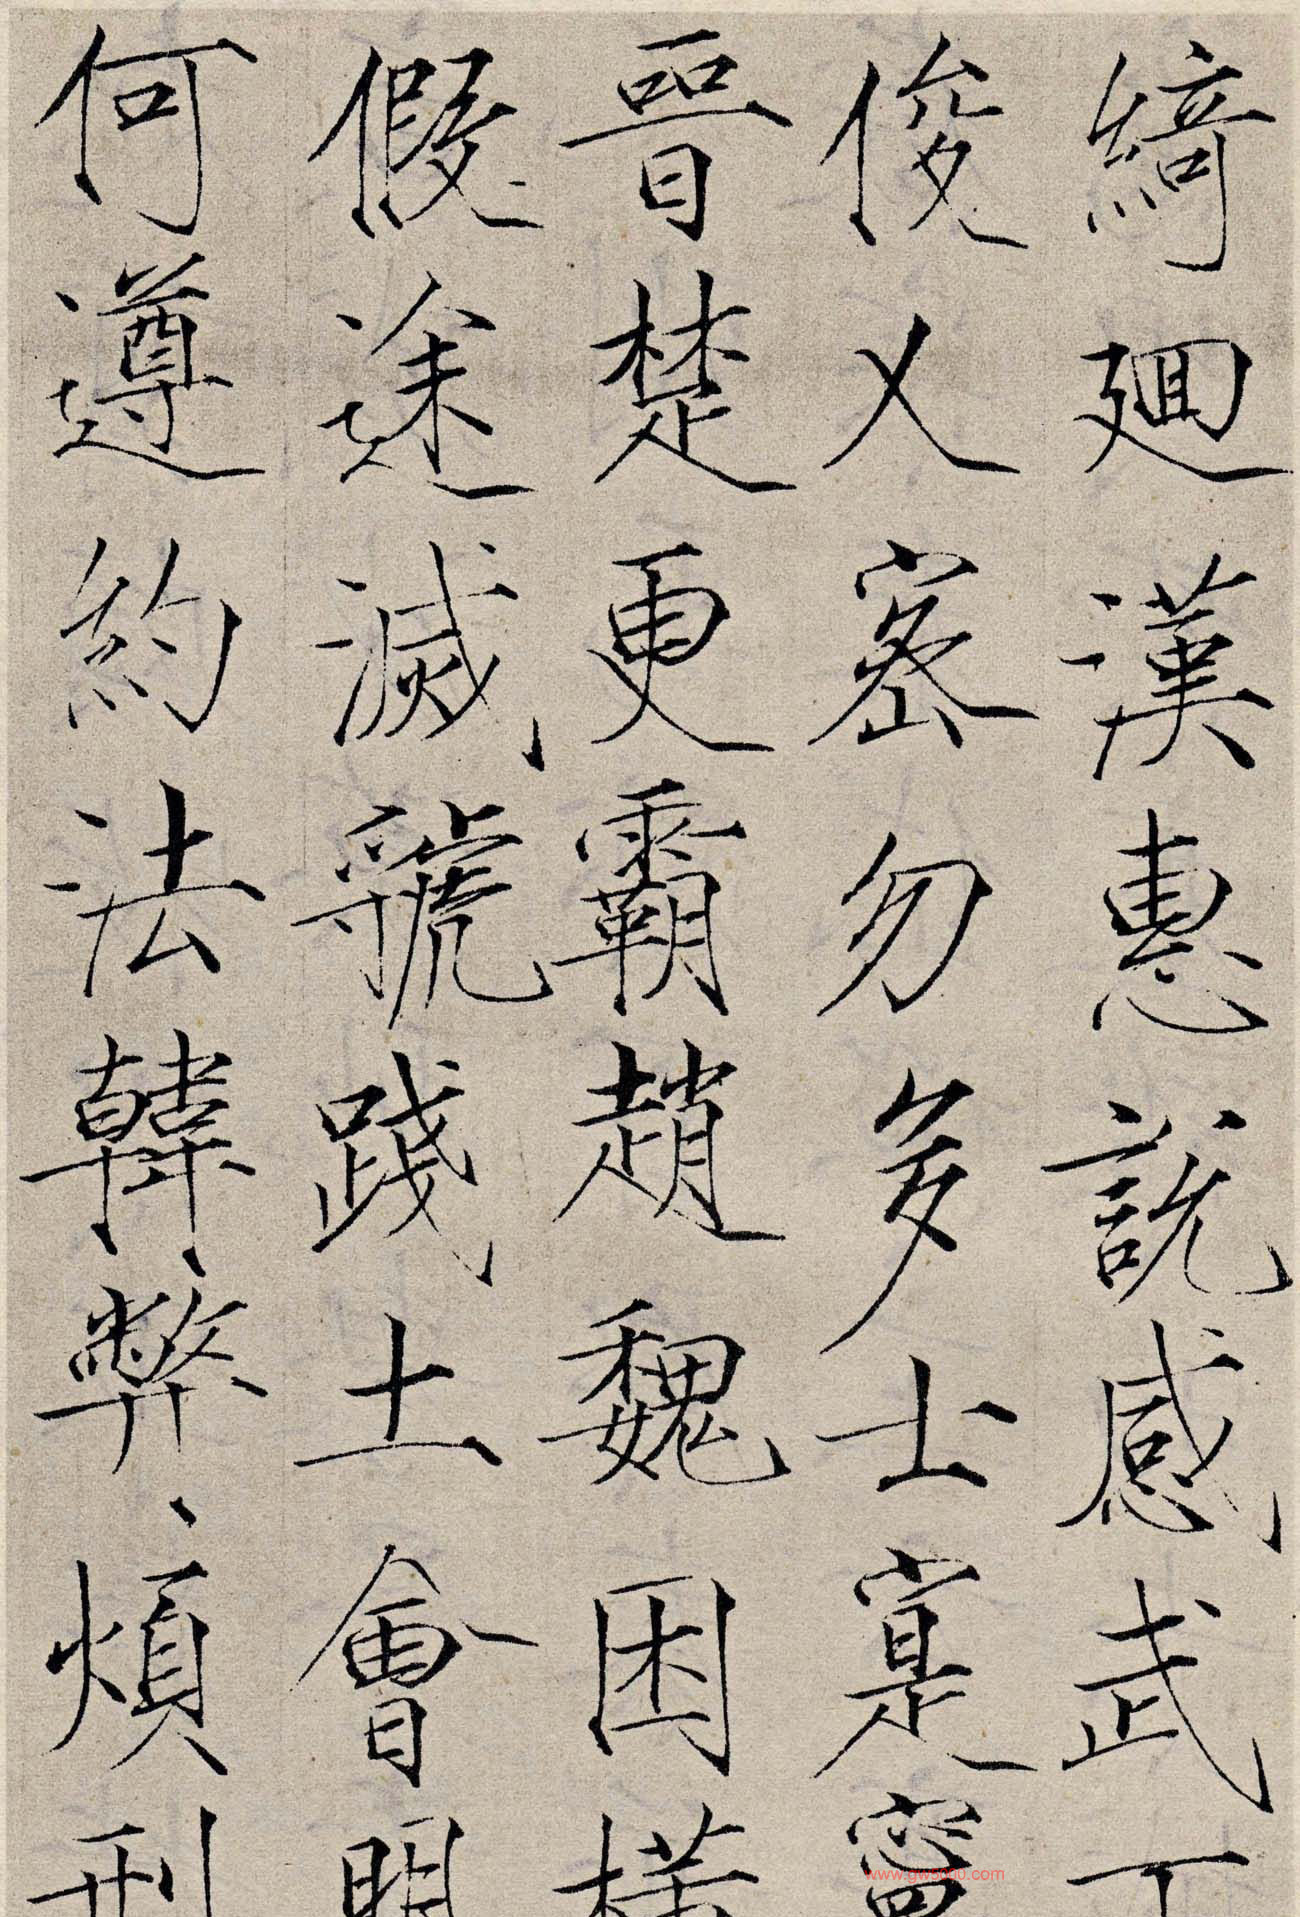 綺迴漢惠說感武丁
俊乂密勿多士寔寗
晉楚更霸趙魏困橫
假途滅虢踐土會盟
何遵約法韓弊煩刑
www.gw5000.com